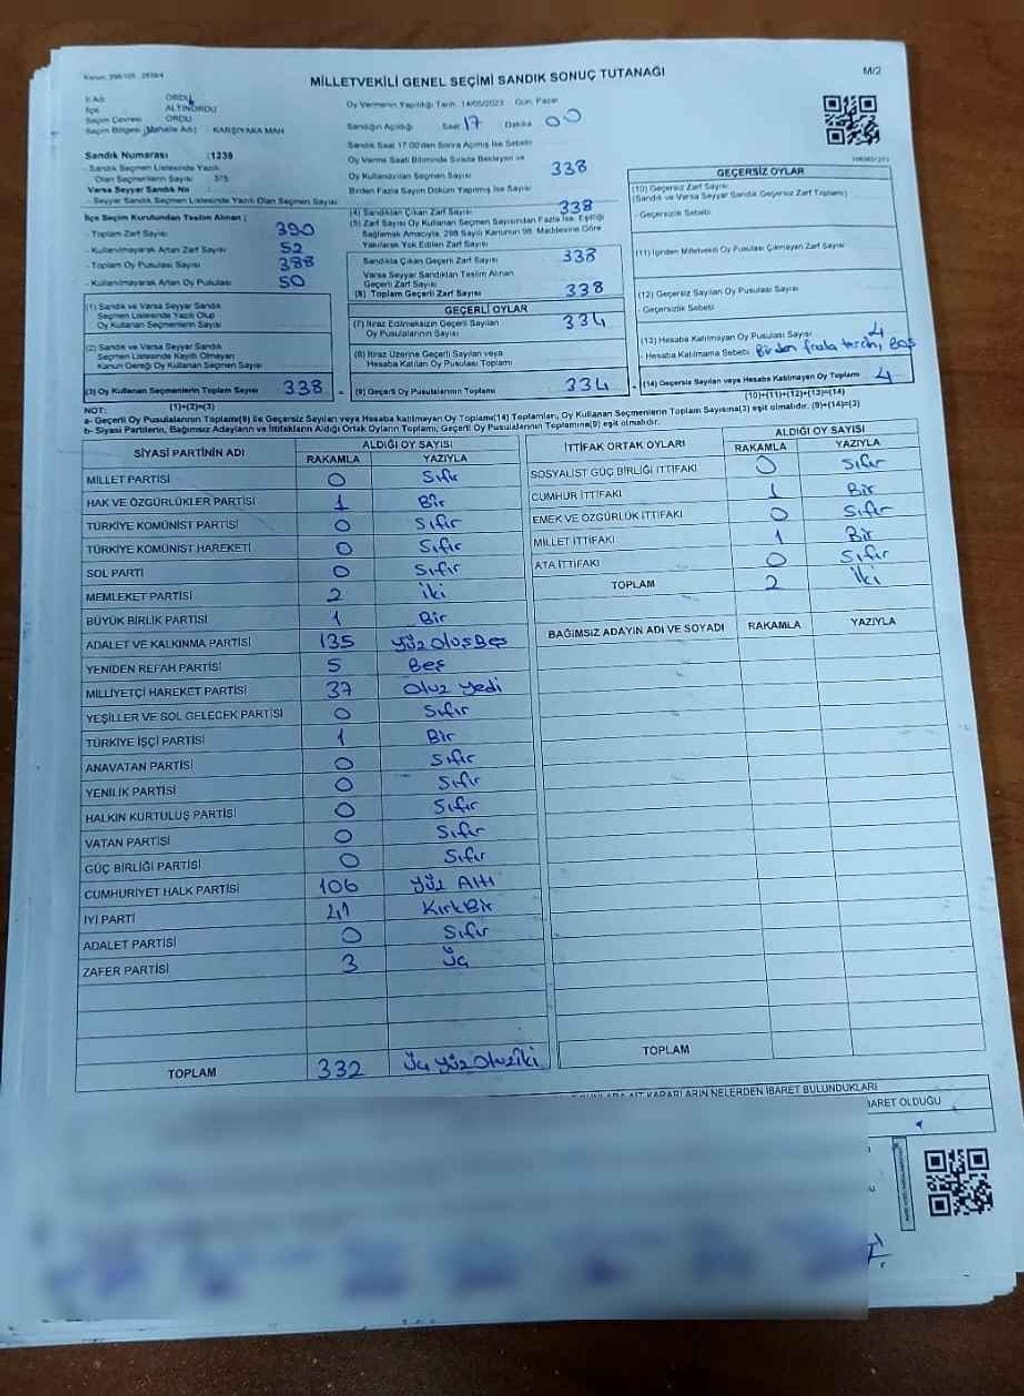 Kanun: 298/105 - 2839/4
MİLLETVEKİLİ GENEL SEÇİMİ SANDIK SONUÇ TUTANAĞI
M/2
İl Adı : ORDU
İlçe : ALTINORDU
Seçim Çevresi : ORDU
Seçim Bölgesi (Mahalle Adı) : KARŞIYAKA MAH
Sandık Numarası :1239
- Sandık Seçmen Listesinde Yazılı
Olan Seçmenlerin Sayısı : 375
Varsa Seyyar Sandık No :
- Seyyar Sandık Seçmen Listesinde Yazılı Olan Seçmen Sayısı
İlçe Seçim Kurulundan Teslim Alınan ;
- Toplam Zarf Sayısı 390
- Kullanılmayarak Artan Zarf Sayısı 52
- Toplam Oy Pusulası Sayısı 388
- Kullanılmayarak Artan Oy Pusulası 50
(1) Sandık ve Varsa Seyyar Sandık
Seçmen Listesinde Yazılı Olup
Oy Kullanan Seçmenlerin Sayısı
(2) Sandık ve Varsa Seyyar Sandık
Seçmen Listesinde Kayıtlı Olmayan
Kanun Gereği Oy Kullanan Seçmen Sayısı
(3) Oy Kullanan Seçmenlerin Toplam Sayısı 338
(1)+(2)=(3)
Oy Vermenin Yapıldığı Tarih: 14/05/2023 Gün: Pazar
Sandığın Açıldığı Saat 17 Dakika 00
Sandık Saat 17:00'den Sonra Açılmış İse Sebebi
Oy Verme Saati Bitiminde Sırada Bekleyen ve
Oy Kullandırılan Seçmen Sayısı 338
Birden Fazla Sayım Döküm Yapılmış İse Sayısı
(4) Sandıktan Çıkan Zarf Sayısı 338
(5) Zarf Sayısı Oy Kullanan Seçmen Sayısından Fazla İse, Eşitliği
Sağlamak Amacıyla, 298 Sayılı Kanunun 98. Maddesine Göre
Yakılarak Yok Edilen Zarf Sayısı
Sandıkta Çıkan Geçerli Zarf Sayısı 338
Varsa Seyyar Sandıktan Teslim Alınan
Geçerli Zarf Sayısı
(6) Toplam Geçerli Zarf Sayısı 338
GEÇERLİ OYLAR
(7) İtiraz Edilmeksizin Geçerli Sayılan
Oy Pusulalarının Sayısı 334
(8) İtiraz Üzerine Geçerli Sayılan veya
Hesaba Katılan Oy Pusulası Toplamı
(9) Geçerli Oy Pusulalarının Toplamı 334
GEÇERSİZ OYLAR
(10) Geçersiz Zarf Sayısı
(Sandık ve Varsa Seyyar Sandık Geçersiz Zarf Toplamı)
- Geçersizlik Sebebi
(11) İçinden Milletvekili Oy Pusulası Çıkmayan Zarf Sayısı
(12) Geçersiz Sayılan Oy Pusulası Sayısı
- Geçersizlik Sebebi
(13) Hesaba Katılmayan Oy Pusulası Sayısı 4
- Hesaba Katılmama Sebebi Birden fazla tercih, Boş
(14) Geçersiz Sayılan veya Hesaba Katılmayan Oy Toplamı 4
(10)+(11)+(12)+(13)=(14)
NOT:
a- Geçerli Oy Pusulalarının Toplamı(9) ile Geçersiz Sayılan veya Hesaba katılmayan Oy Toplamı(14) Toplamları, Oy Kullanan Seçmenlerin Toplam Sayısına(3) eşit olmalıdır. (9)+(14)=(3)
b- Siyasi Partilerin, Bağımsız Adayların ve İttifakların Aldığı Ortak Oyların Toplamı, Geçerli Oy Pusulalarının Toplamına(9) eşit olmalıdır.
SİYASİ PARTİNİN ADI ALDIĞI OY SAYISI
RAKAMLA YAZIYLA
MİLLET PARTİSİ 0 Sıfır
HAK VE ÖZGÜRLÜKLER PARTİSİ 1 Bir
TÜRKİYE KOMÜNİST PARTİSİ 0 Sıfır
TÜRKİYE KOMÜNİST HAREKETİ 0 Sıfır
SOL PARTİ 0 Sıfır
MEMLEKET PARTİSİ 2 iki
BÜYÜK BİRLİK PARTİSİ 1 Bir
ADALET VE KALKINMA PARTİSİ 135 Yüz otuz Beş
YENİDEN REFAH PARTİSİ 5 Beş
MİLLİYETÇİ HAREKET PARTİSİ 37 Otuz yedi
YEŞİLLER VE SOL GELECEK PARTİSİ 0 Sıfır
TÜRKİYE İŞÇİ PARTİSİ 1 Bir
ANAVATAN PARTİSİ 0 Sıfır
YENİLİK PARTİSİ 0 Sıfır
HALKIN KURTULUŞ PARTİSİ 0 Sıfır
VATAN PARTİSİ 0 Sıfır
GÜÇ BİRLİĞİ PARTİSİ 0 Sıfır
CUMHURİYET HALK PARTİSİ 106 Yüz Altı
İYİ PARTİ 41 Kırk Bir
ADALET PARTİSİ 0 Sıfır
ZAFER PARTİSİ 3 Üç
TOPLAM 332 Üç yüz Otuz iki
İTTİFAK ORTAK OYLARI ALDIĞI OY SAYISI
RAKAMLA YAZIYLA
SOSYALİST GÜÇ BİRLİĞİ İTTİFAKI 0 Sıfır
CUMHUR İTTİFAKI 1 Bir
EMEK VE ÖZGÜRLÜK İTTİFAKI 0 Sıfır
MİLLET İTTİFAKI 1 Bir
ATA İTTİFAKI 0 Sıfır
TOPLAM 2 İki
BAĞIMSIZ ADAYIN ADI VE SOYADI RAKAMLA YAZIYLA
TOPLAM
AİT KARARLARIN NELERDEN İBARET BULUNDUKLARI
İBARET OLDUĞU